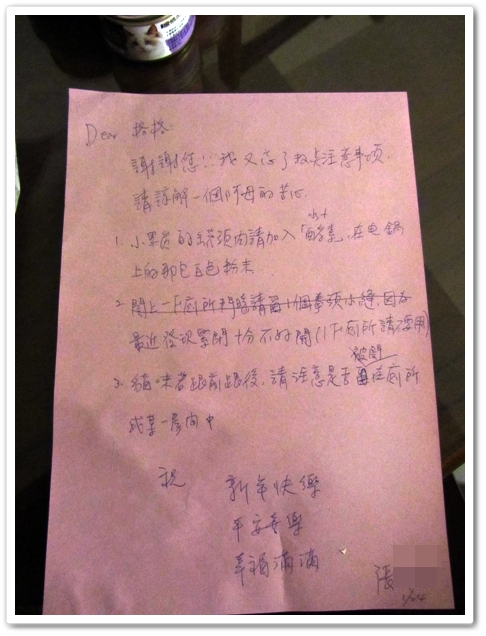 Dear 格格
謝謝您!! 我又忘了 注意事項.
請諒解一個阿母的苦心.
1. 小黑 的罐頭內請加入「酵素」, 在电鍋
上的那包白色粉末
2. 關上1F廁所門時請留1個拳頭小縫, 因為
最近發現緊閉十分不好開(1F廁所請不要用)
3. 貓咪若跟前跟後, 請注意是否被關在廁所
或某一房間中
祝
新年快樂
平安喜樂
幸福滿滿
張